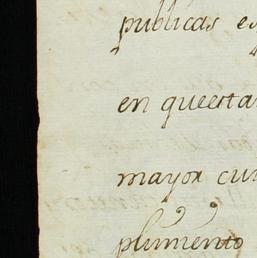 publicas es
en queesta
mayor cum
plimiento